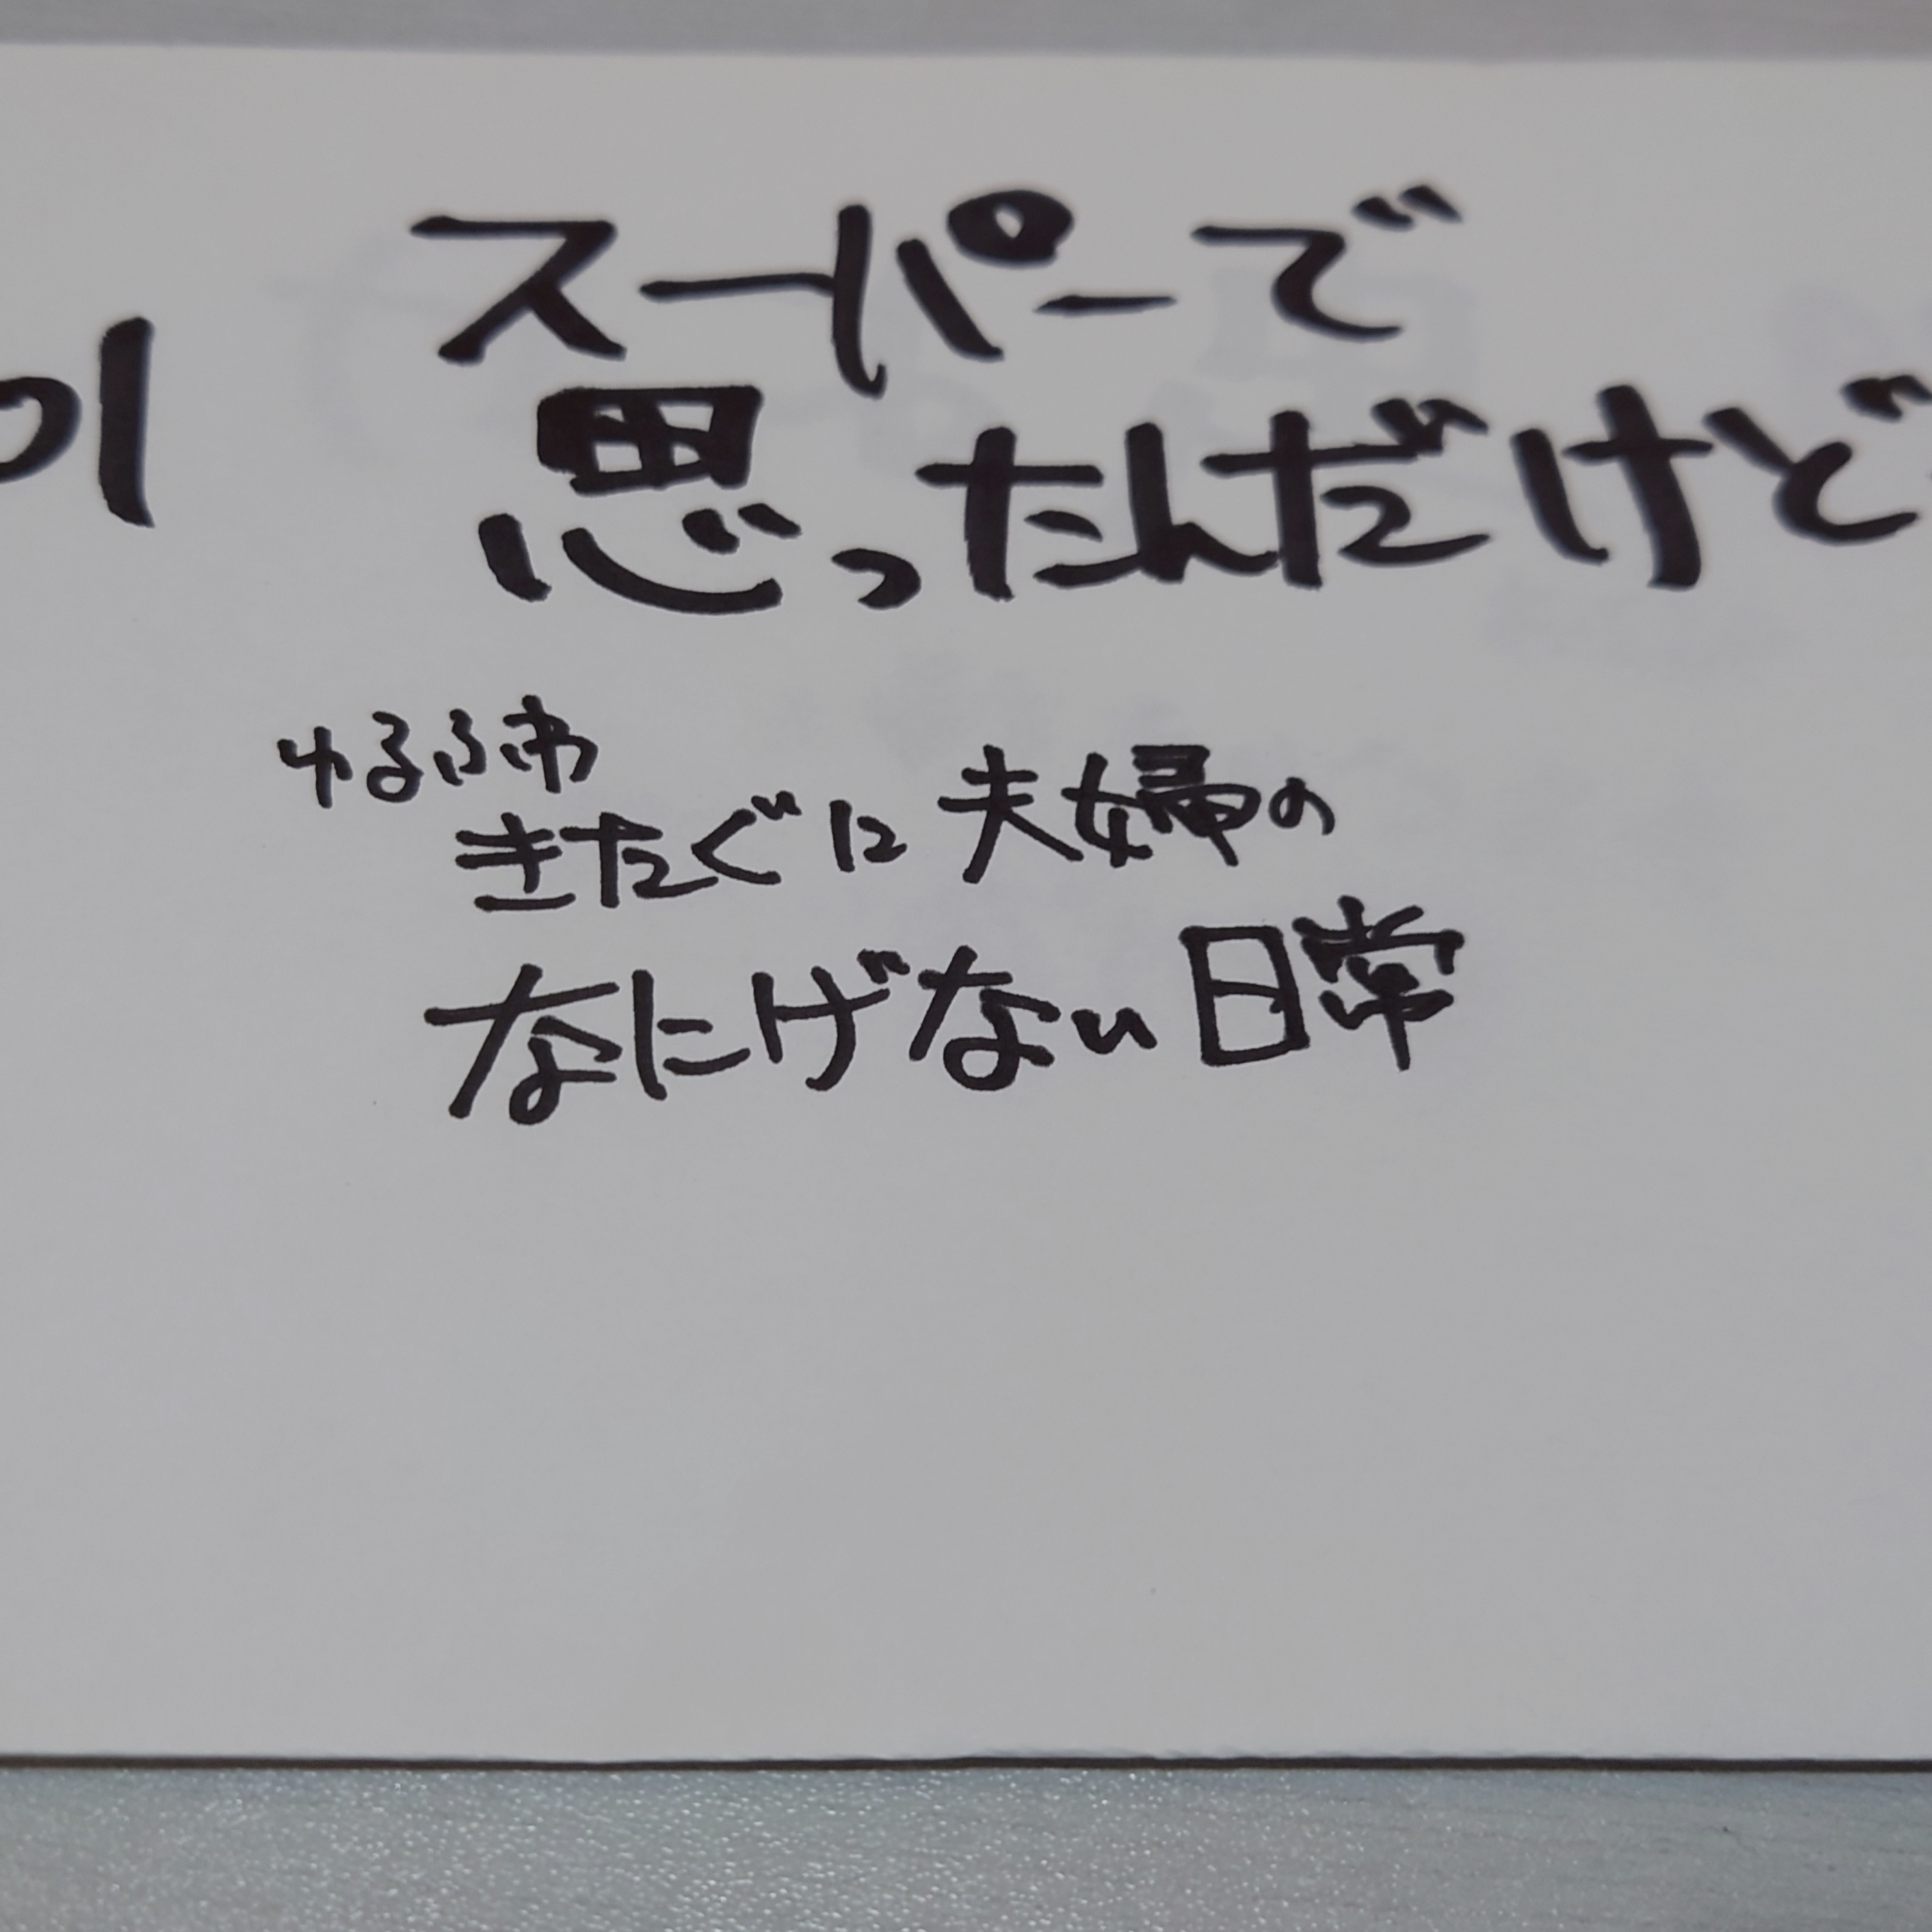 スーパーで
思ったんだけど
ゆるふわ
きたぐに夫婦の
なにげない日常